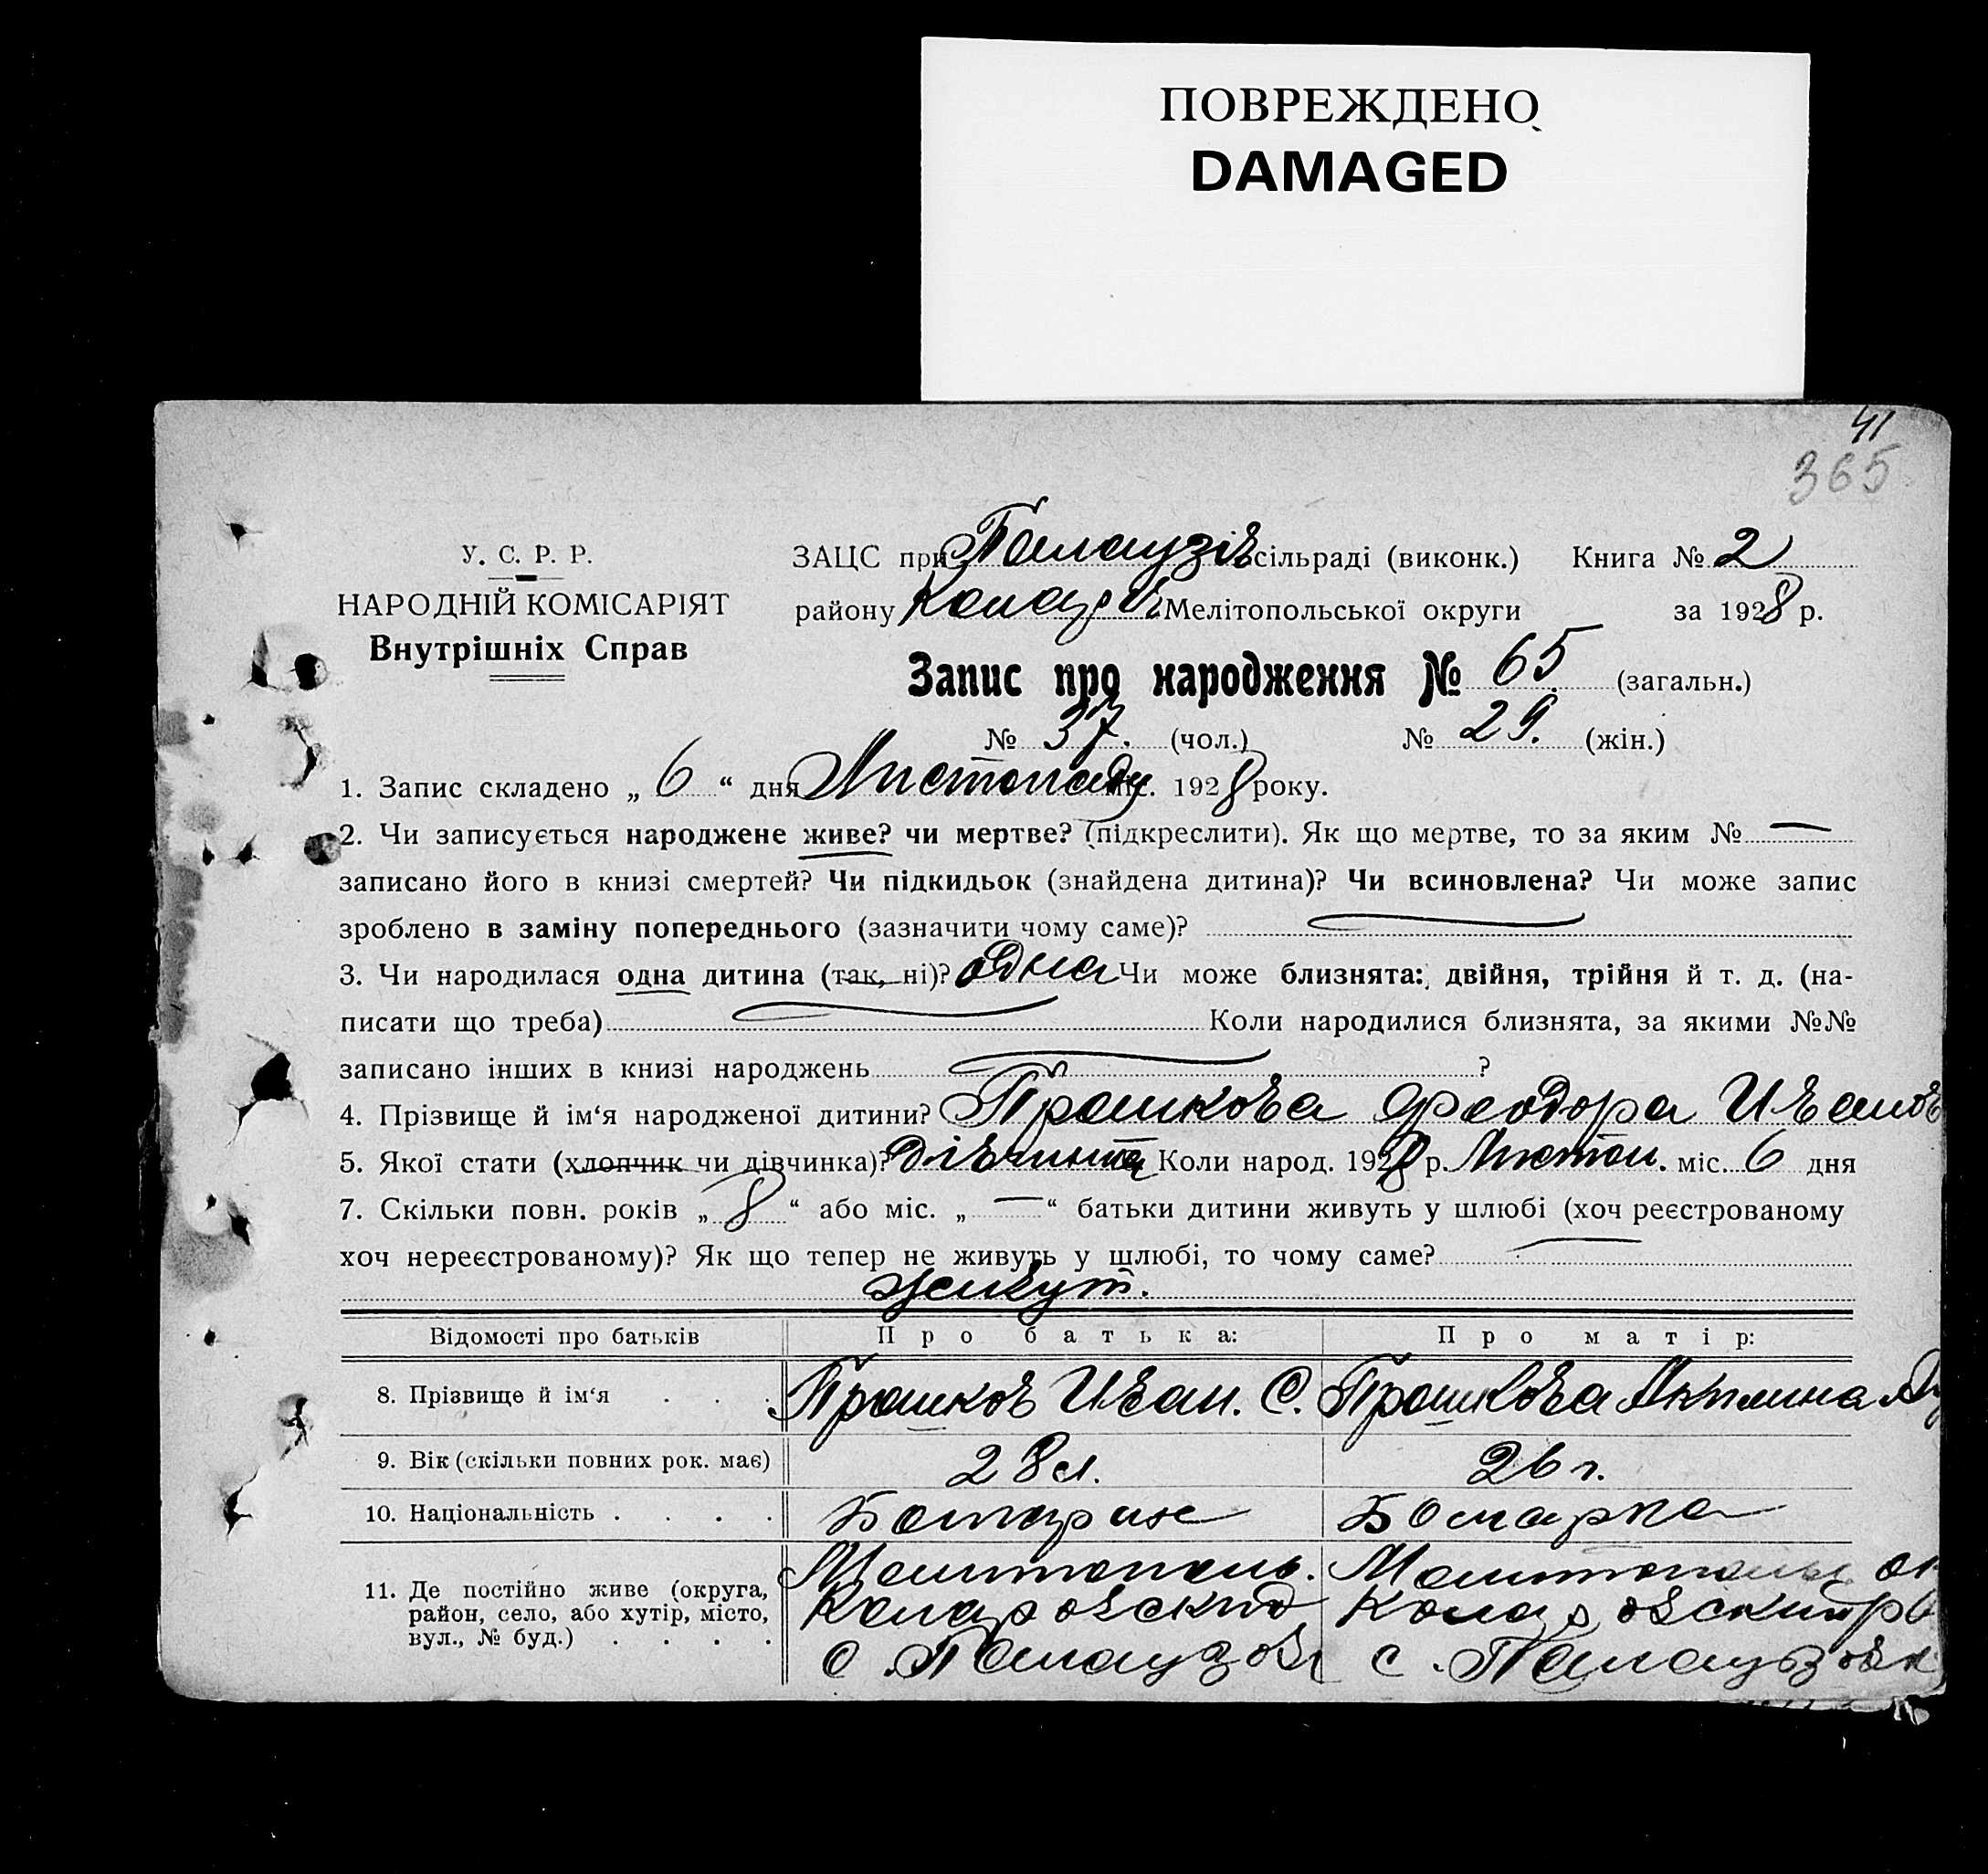 ПОВРЕЖДЕНО
DAMAGED
41
365
У. С. Р. Р.
НАРОДНІЙ КОМІСАРІЯТ
Внутрішніх Справ
ЗАЦС при Палаузів сільраді (виконк.) Книга № 2
району Мелітопольської округи за 1928 р.
Запис про народження № 65 (загальн.)
№ 37. (чол.) № 29. (жін.)
1. Запис складено „ 6 “ дня Листопаду міс. 1928 року.
2. Чи записується народжене живе? чи мертве? (підкреслити). Як що мертве, то за яким № —
записано його в книзі смертей? Чи підкидьок (знайдена дитина)? Чи всиновлена? Чи може запис
зроблено в заміну попереднього (зазначити чому саме)?
3. Чи народилася одна дитина (так, ні)? одна Чи може близнята: двійня, трійня й т. д. (на-
писати що треба) Коли народилися близнята, за якими №№
записано інших в книзі народжень ?
4. Прізвище й ім‘я народженої дитини? Прашкова Феодора Иванов
5. Якої стати (хлопчик чи дівчинка)? дівчинка Коли народ. 1928 р. Листоп. міс. 6 дня
7. Скільки повн. років „ 8 “ або міс. „ — “ батьки дитини живуть у шлюбі (хоч реєстрованому
хоч нереєстрованому)? Як що тепер не живуть у шлюбі, то чому саме?
живут.
Відомості про батьків Про батька: Про матір:
8. Прізвище й ім‘я . . . Прашков Иван. С. Прашкова Акилина
9. Вік (скільки повних рок. має) 28 л. 26 г.
10. Національність . . . . Болгарин Болгарка
11. Де постійно живе (округа,
район, село, або хутір, місто,
вул., № буд.) . . . .
Мелитополь. Мелитополь ок
Коларовский Коларовский р
с. Палаузов с. Палаузовк